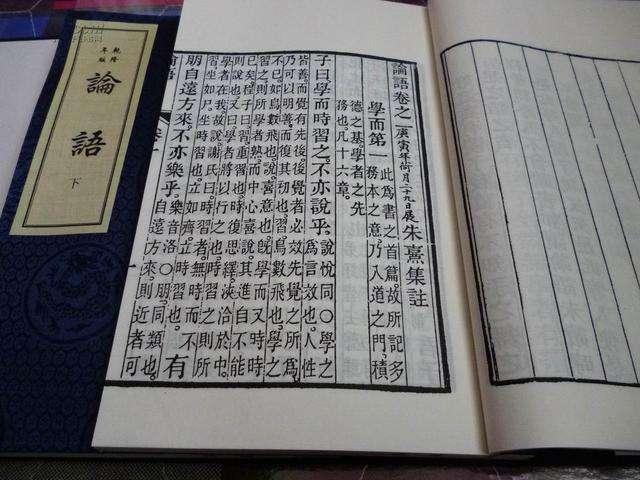 乾隆
年版
論語
下
論語卷之一
庚寅年荷月二十九日展
朱熹集註
學而第一
此為書之首篇。故所記多
務本之意。乃入道之門。積
德之基。學者之先
務也。凡十六章。
子曰。學而時習之。不亦說乎。
說悅同。○學之
為言效也。人性
皆善。而覺有先後。後覺者必效先覺之所為。
乃可以明善而復其初也。習。鳥數飛也。學之
不已。如鳥數飛也。說。喜意也。既學而又時時
習之。則所學者熟。而中心喜說。其進自不能
已矣。程子曰。習。重習也。時復思繹。浹洽於中。
則說也。又曰。學者。將以行之也。時習之。則所
學者在我。故說。謝氏曰。時習者。無時而不
習。坐如尸。坐時習也。立如齊。立時習也。
有
朋自遠方來。不亦樂乎。
樂音洛。○朋。同類也。
自遠方來。則近者可
論語
一